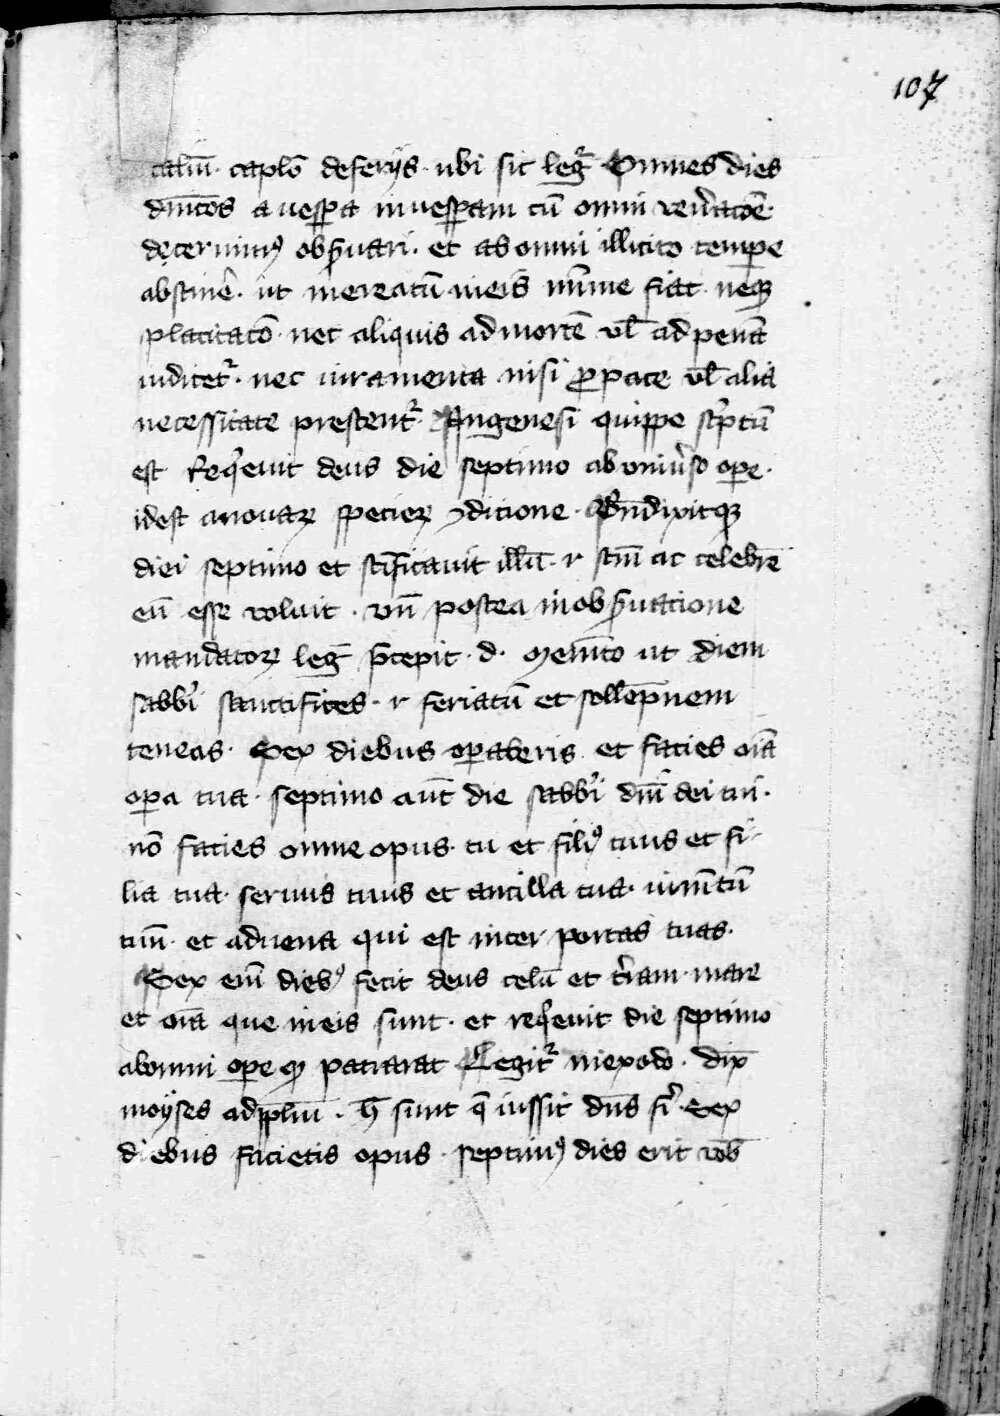 107
talium. caplo de ferijs. ubi sic legr̃ Omnes dies
dnicos a vespa in vespam cu omni reveracoe.
decernimꝰ obs̃uari. et ab omni illicito tempe
abstinẽ. ut mercatu in eis mime fiat neqꝫ
placitaco. nec aliquis ad mortẽ vl̃ ad penã
iudicetr̃. nec iuramenta nisi ꝓ pace vl̃ alia
necessitate prestentr̃ In genesi quippe scptũ
est Reqͥevit deus die septimo ab univ̾so ope.
id est a novaꝝ specieꝝ ꝯdicione. Bn̄dixitqꝫ
diei septimo et sc̄ificavit illũ. r sc̄m ac celebrẽ
eũ esse voluit. vñ postea in obs̃uatione
mandatoꝝ leg̃ p̄cepit. d. Memẽto ut diem
sabbi sanctifices. r feriatũ et sollepnem
teneas. Sex diebus opaberis et facies oĩa
opa tua. septimo aũt die sabbi dñi dei tui.
nõ facies omne opus. tu et filiꝰ tuus et fi-
lia tua. servus tuus et ancilla tua. iumẽtũ
tuũ. et advena qui est inter portas tuas.
Sex eni diebꝰ fecit deus celũ et t̾ram. mare
et oĩa que in eis sunt. et reqͥevit die septimo
ab omni ope qꝫ patrarat Legitr̃ in exodo. dix̃
moyses ad pl̃m. h̃ sunt q̃ iussit dñs fi. Sex
diebus facietis opus. septimꝰ dies erit vob̃